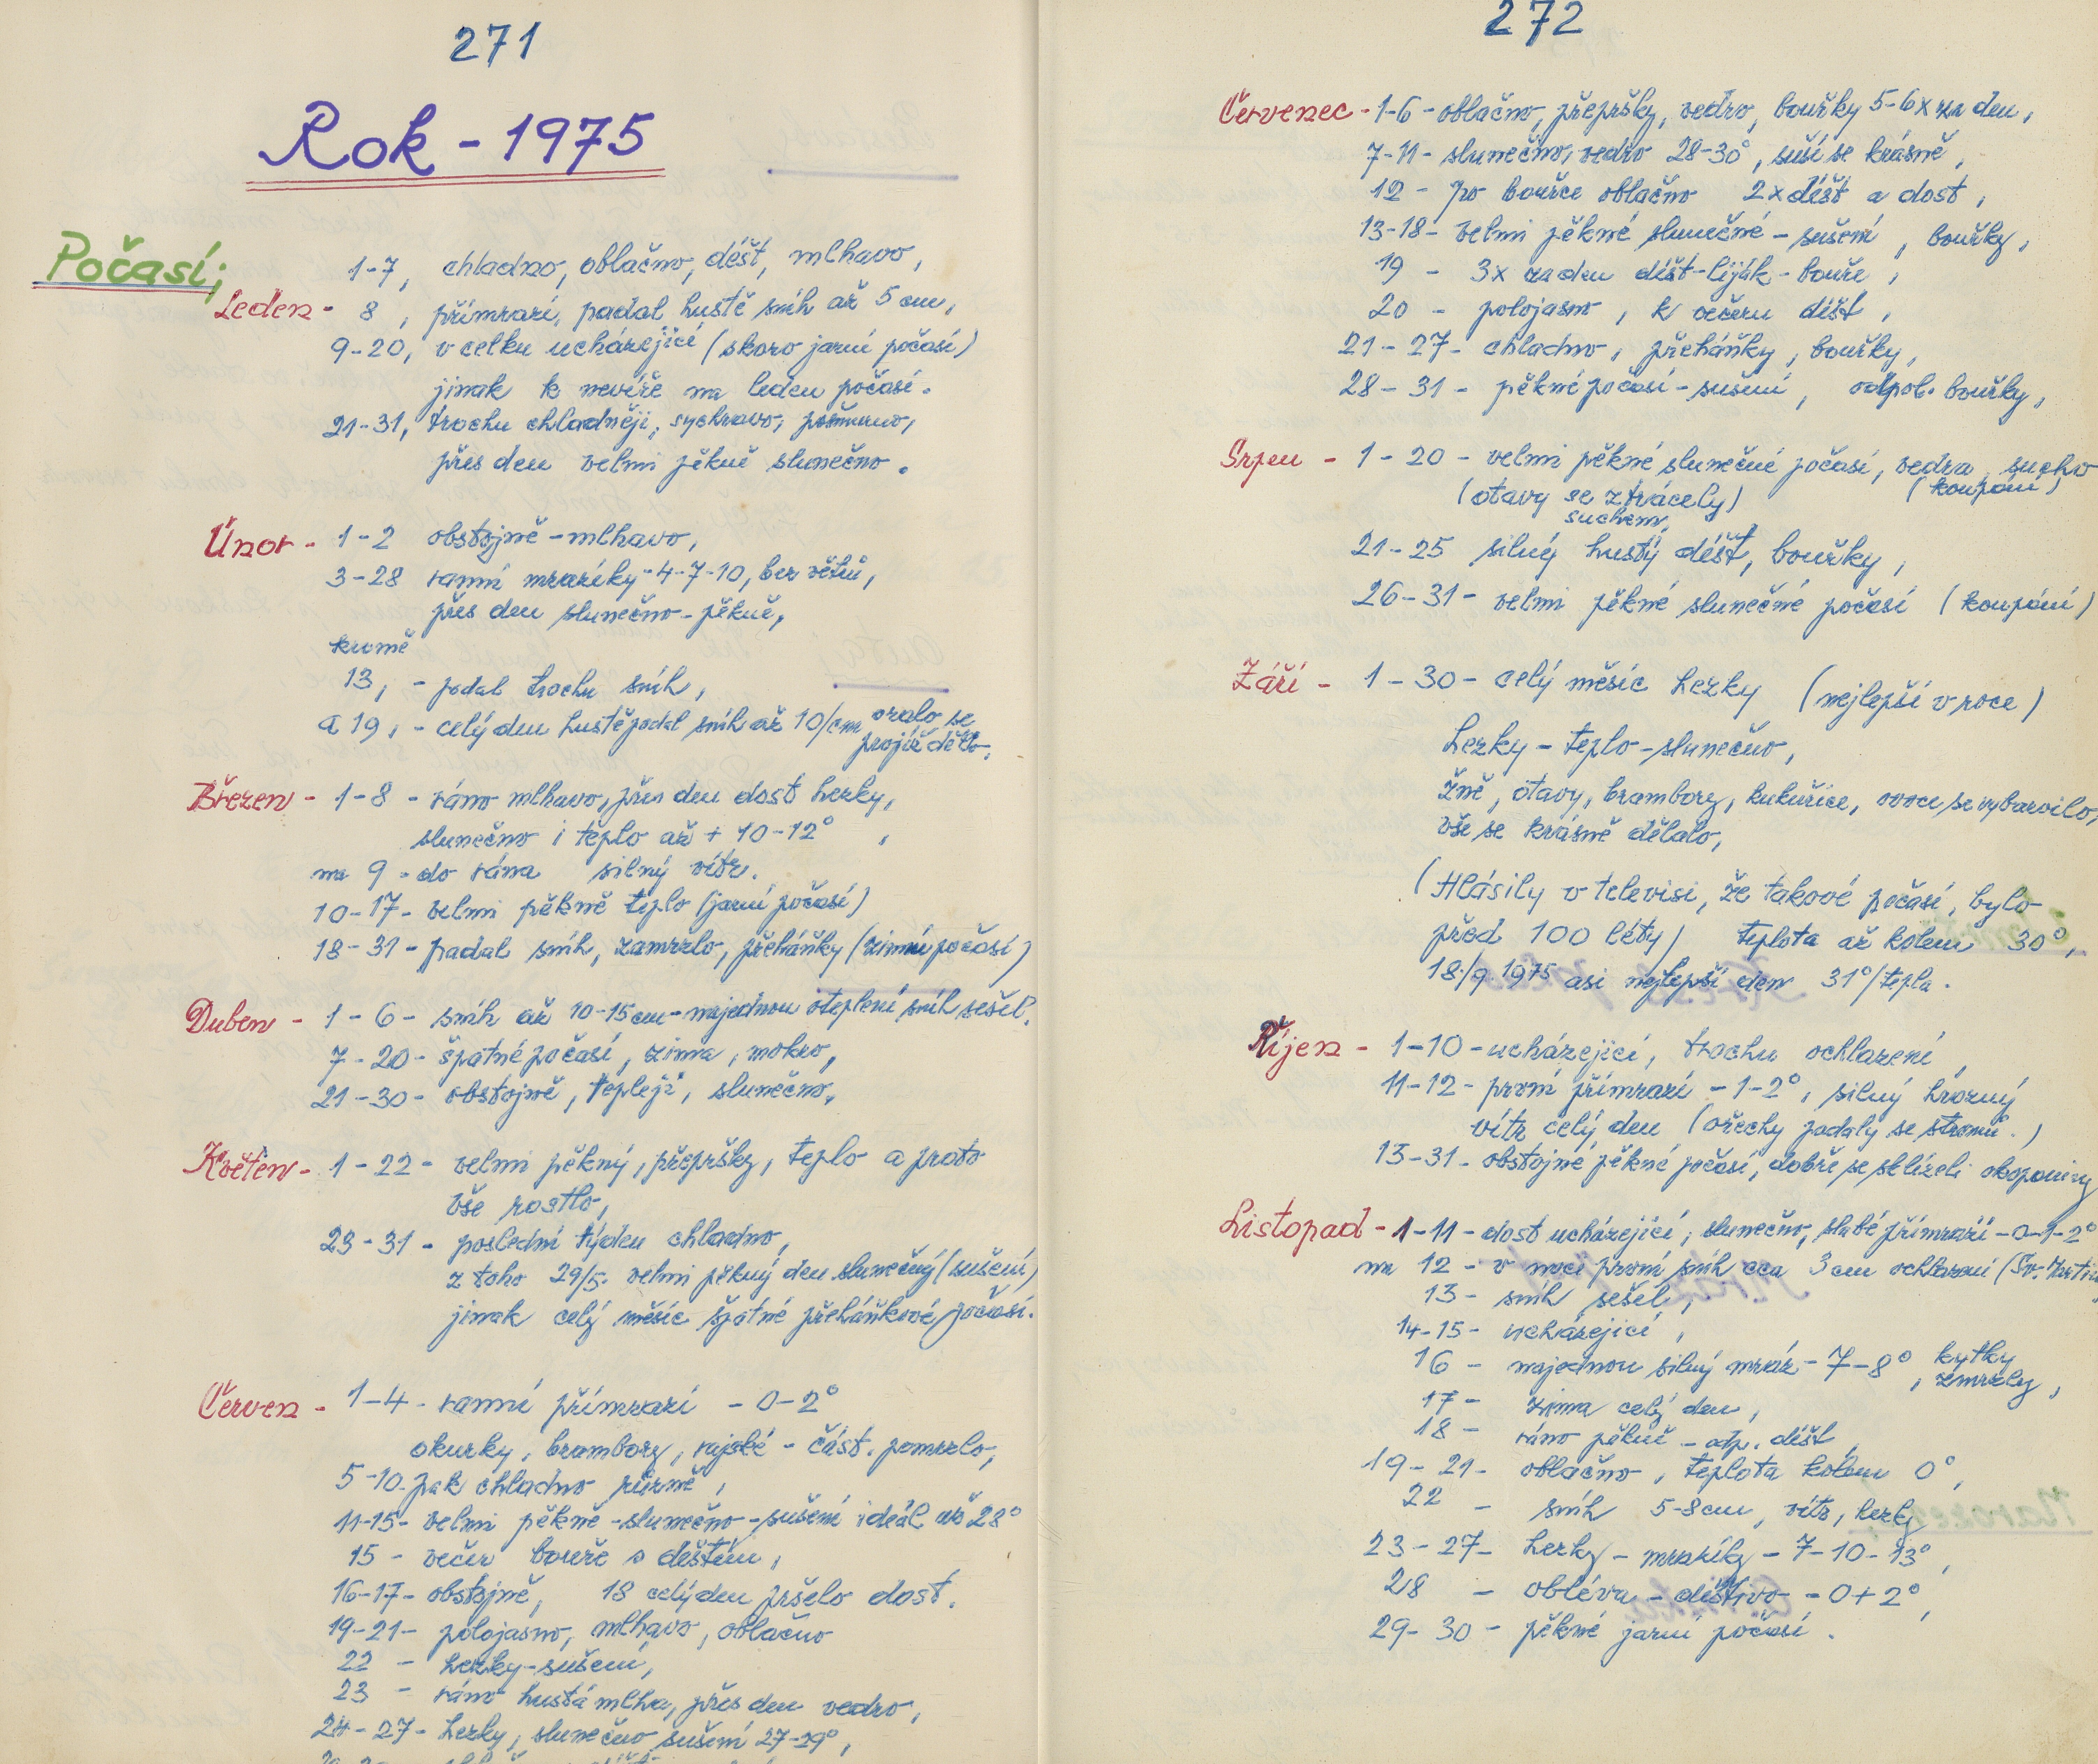 271
Rok - 1975
Počasí;
Leden -
1-7, chladno, oblačno, déšť, mlhavo,
8, přímrazí, padal hustě sníh až 5 cm,
9-20, v celku ucházející (skoro jarní počasí)
jinak k nevíře na leden počasí.
21-31, trochu chladněji, sychravo, pošmurno,
přes den velmi pěkně slunečno.
Únor - 1-2 obstojně - mlhavo,
3-28 ranní mrazíky - 4-7-10, bez větrů,
přes den slunečno - pěkně,
kromě
13, - padal trochu sníh,
a 19, - celý den hustě padal sníh až 10/cm oralo se
projíždělo.
Březen - 1-8 - ráno mlhavo, přes den dost hezky,
slunečno i teplo až + 10-12°,
na 9 - do rána silný vítr.
10-17 - velmi pěkně teplo (jarní počasí)
18-31 - padal sníh, zamrzlo, přeháňky (zimní počasí)
Duben - 1-6 - sníh až 10-15 cm - najednou oteplení sníh sešel.
7-20 - špatné počasí, zima, mokro,
21-30 - obstojně, tepleji, slunečno,
Květen - 1-22 - velmi pěkný, přepršky, teplo a proto
vše rostlo,
23-31 - poslední týden chladno,
z toho 29/5. velmi pěkný den slunečný (sušení)
jinak celý měsíc špatné přeháňkové počasí.
Červen - 1-4 - ranní přímrazí - 0-2°
okurky, brambory, rajské - část. pomrzlo,
5-10. pak chladno různě,
11-15 - velmi pěkně - slunečno - sušení ideál až 28°
15 - večer bouře s deštěm,
16-17 - obstojně, 18 celý den pršelo dost.
19-21 - polojasno, mlhavo, oblačno
22 - hezky - sušení,
23 - ráno hustá mlha, přes den vedro,
24-27 - hezky, slunečno sušení 27-29°,
272
Červenec - 1-6 - oblačno, přepršky, vedro, bouřky 5-6x za den,
7-11 - slunečno, vedro 28-30°, suší se krásně,
12 - po bouřce oblačno 2x déšť a dost,
13-18 - velmi pěkné slunečné - sušení, bouřky,
19 - 3x za den déšť - liják - bouře,
20 - polojasno, k večeru déšť,
21-27 - chladno, přeháňky, bouřky,
28-31 - pěkné počasí - sušení, odpol. bouřky,
Srpen - 1-20 - velmi pěkné slunečné počasí, vedra, sucho
(otavy se ztrácely) (koupání)
suchem,
21-25 silný hustý déšť, bouřky,
26-31 - velmi pěkné slunečné počasí (koupání)
Září - 1-30 - celý měsíc hezky (nejlepší v roce)
hezky - teplo - slunečno,
žně, otavy, brambory, kukuřice, ovoce se vybarvilo,
vše se krásně dělalo,
(Hlásily v televisi, že takové počasí, bylo
před 100 léty) teplota až kolem 30°,
18./9. 1975 asi nejlepší den 31°/tepla.
Říjen - 1-10 - ucházející, trochu ochlazení,
11-12 - první přímrazí - 1-2°, silný hrozný
vítr celý den (ořechy padaly se stromů.)
13-31 - obstojné pěkné počasí, dobře se sklízeli okopaniny
Listopad - 1-11 - dost ucházející, slunečno, slabé přímrazí - 0-1-2°
na 12 - v noci první sníh cca 3 cm ochlazení (Sv.
13 - sníh sešel,
14-15 - ucházející,
16 - najednou silný mráz - 7-8°, kytky
zmrzly,
17 - zima celý den,
18 - ráno pěkně - odp. déšť
19-21 - oblačno, teplota kolem 0°,
22 - sníh 5-8 cm, vítr, hezky
23-27 - hezky - mrazíky - 7-10-13°,
28 - obléva - deštivo - 0+2°,
29-30 - pěkné jarní počasí.